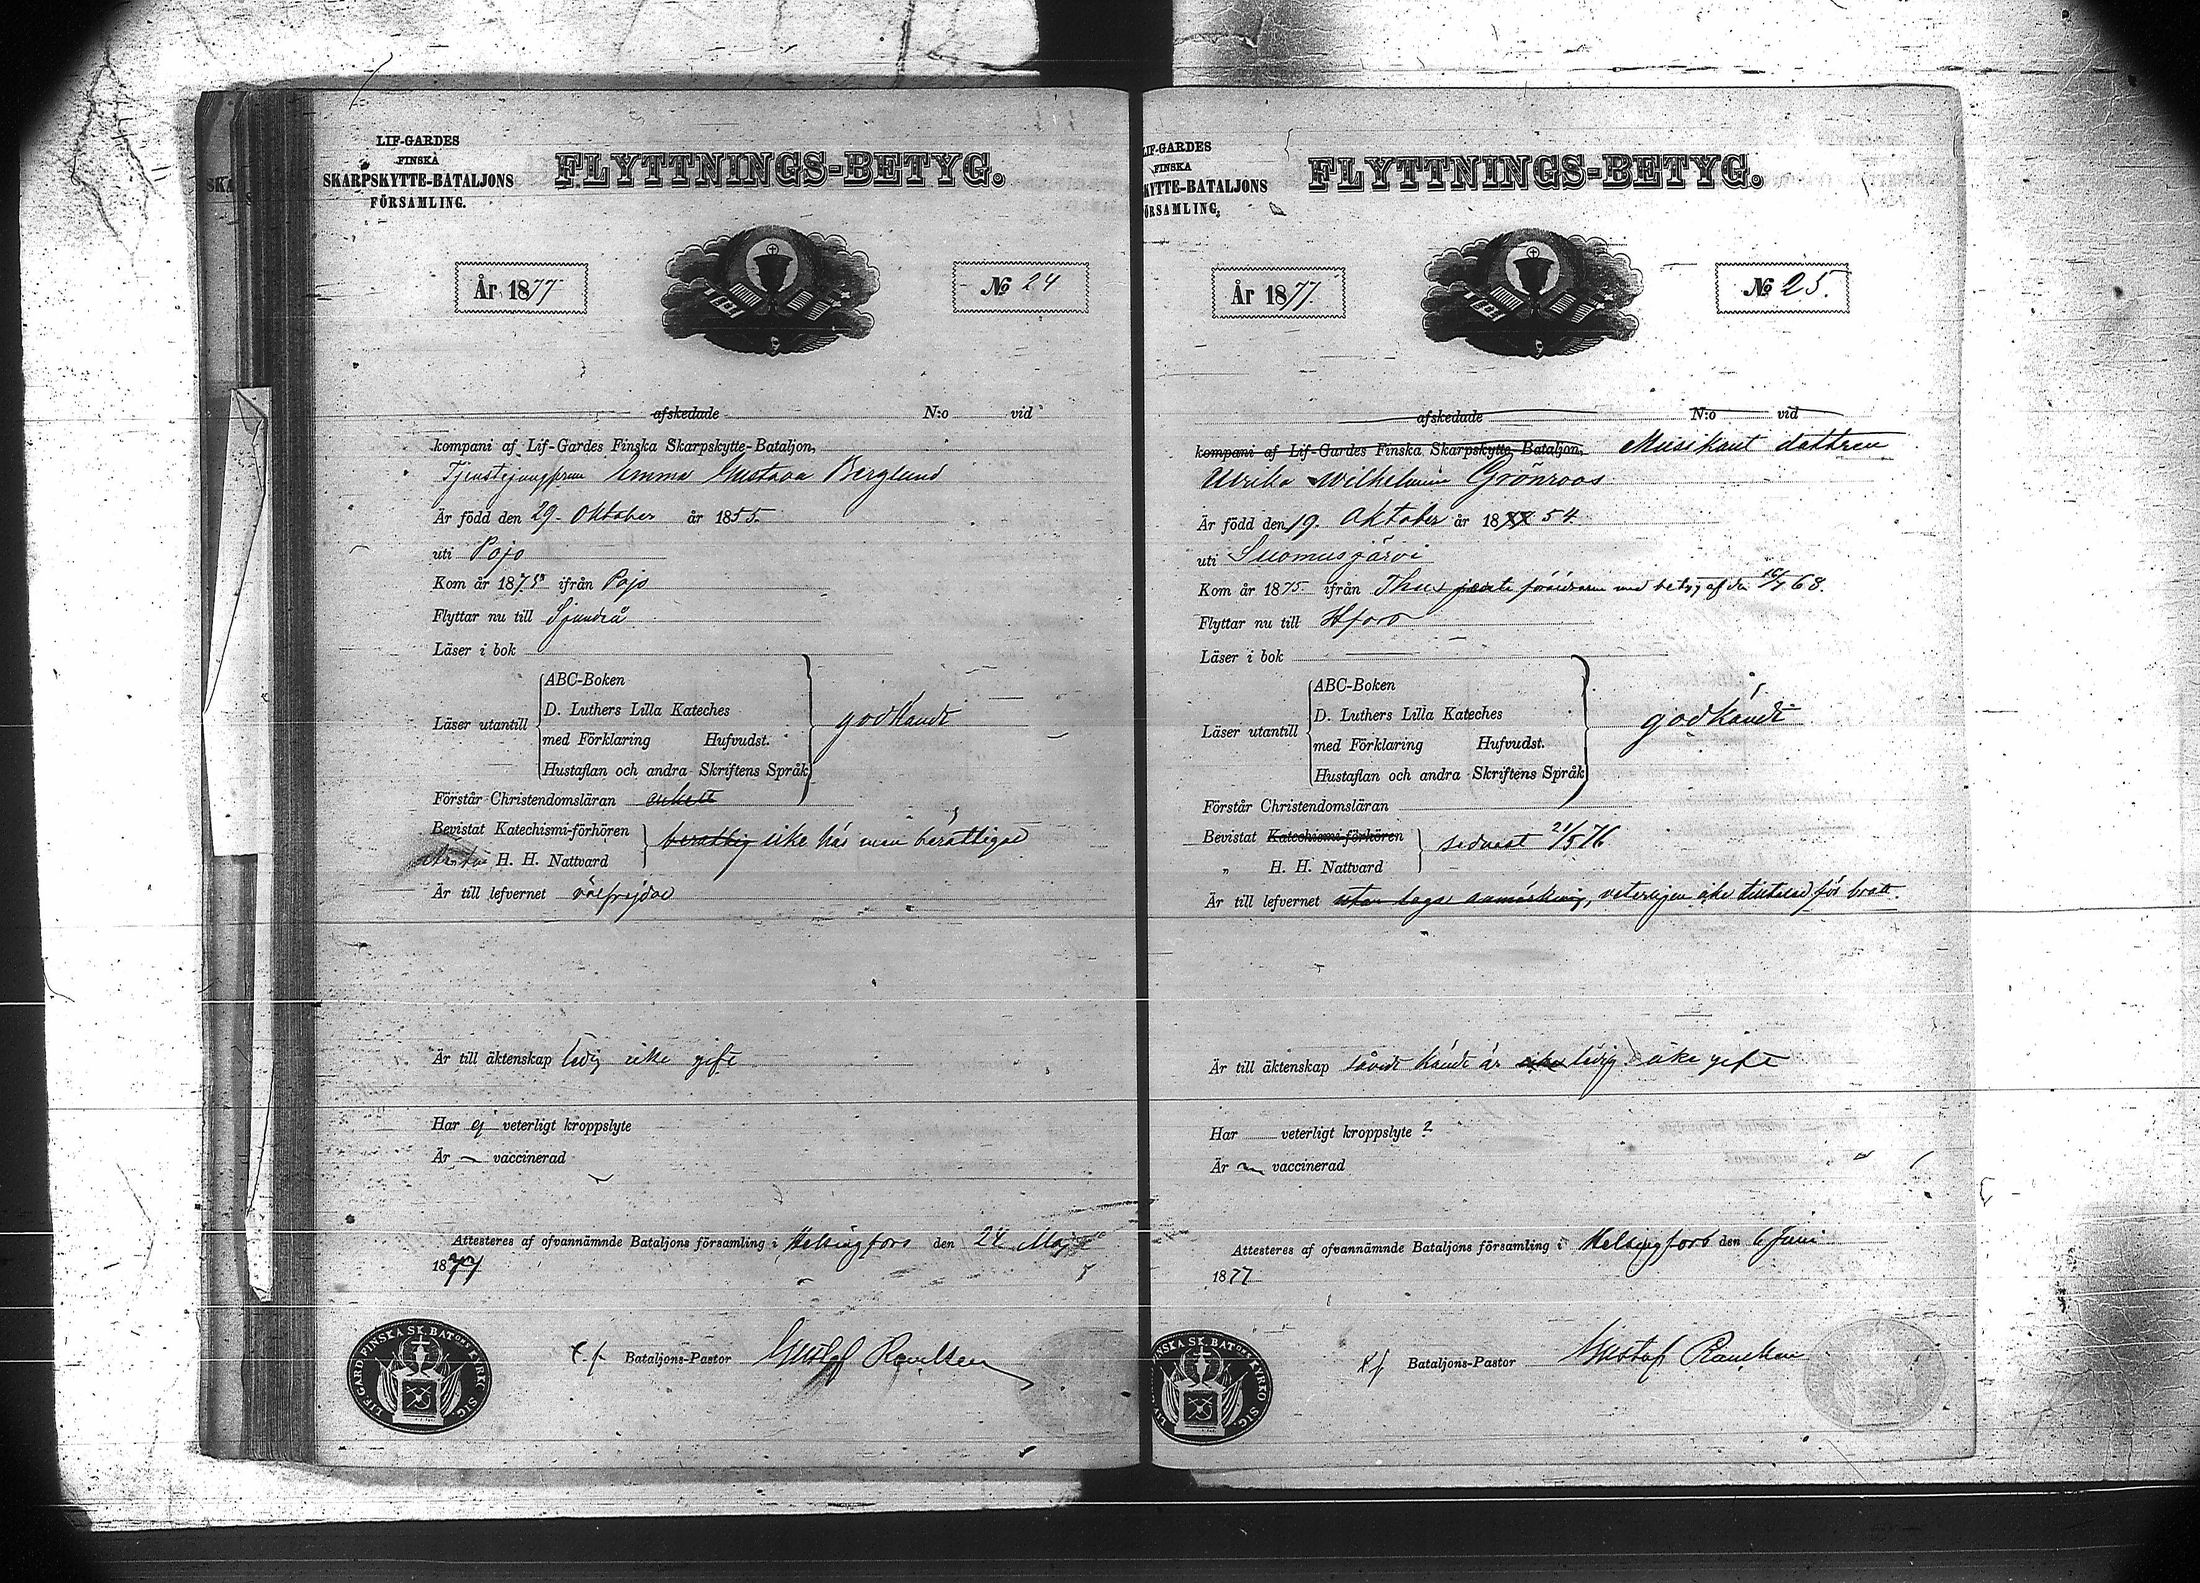 LIF-GARDES
FINSKA
SKARPSKYTTE-BATALJONS
FÖRSAMLING.
FLYTTNINGS-BETYG.
År 1877
No 24
afskedade N:o vid
kompani af Lif-Gardes Finska Skarpskytte-Bataljon,
Tjenstejungfrun Emma Gustava Berglund
Är född den 29. Oktober år 1855.
uti Pojo
Kom år 1875 ifrån Pojo
Flyttar nu till Sjundeå
Läser i bok
ABC-Boken
D. Luthers Lilla Kateches
Läser utantill godkändt
med Förklaring Hufvudst.
Hustaflan och andra Skriftens Språk
Förstår Christendomsläran enkelt
Bevistat Katechismi-förhören
berättig icke här men berättigad
H. H. Nattvard
Är till lefvernet välfrejdad
Är till äktenskap ledig icke gift
Har ej veterligt kroppslyte
Är vaccinerad
Attesteres af ofvannämnde Bataljons församling i Helsingfors den 24 Maj
1877
LIF. GARD FINSKA SK. BAT:ONS KYRKO SIG.
t.f. Bataljons-Pastor Gustaf
LIF-GARDES
FINSKA
KYTTE-BATALJONS
ÖRSAMLING,
FLYTTNINGS-BETYG.
År 1877.
No 25.
afskedade N:o vid
kompani af Lif-Gardes Finska Skarpskytte-Bataljon, Musikant dottren
Ulrika Wilhelmina Grönroos
Är född den 19. Oktober år 18 54.
uti Suomusjärvi
Kom år 1875 ifrån föräldrarne med betyg af den 68.
Flyttar nu till Hfors
Läser i bok
ABC-Boken
D. Luthers Lilla Kateches
Läser utantill godkändt
med Förklaring Hufvudst.
Hustaflan och andra Skriftens Språk
Förstår Christendomsläran
Bevistat Katechismi-förhören
sednast 21/5 76
„ H. H. Nattvard
Är till lefvernet utan laga anmärkning, veterligen icke tilltalad för brott.
Är till äktenskap såvidt kändt är icke ledig icke gift
Har veterligt kroppslyte ?
Är vaccinerad
Attesteres af ofvannämnde Bataljons församling i Helsingfors den 6 Juni
1877
FINSKA SK. BAT:ONS KYRKO SIG.
t.f. Bataljons-Pastor Gustaf